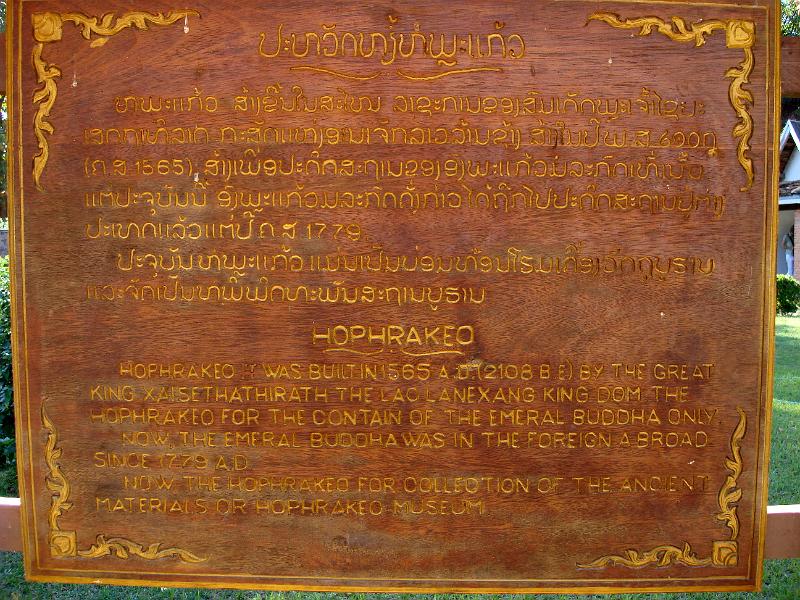 ປະຫວັດຫໍພຣະແກ້ວ
ຫໍພຣະແກ້ວ ສ້າງຂຶ້ນໃນສະໄໝ
(ຄ.ສ. 1565) ສ້າງເພື່ອປະດິດສະຖານຂອງອົງພຣະແກ້ວມໍລະກົດເທົ່ານັ້ນ
ແຕ່ປະຈຸບັນນີ້ ອົງພຣະແກ້ວມໍລະກົດດັ່ງກ່າວ ໄດ້ຖືກໄປປະດິດສະຖານຢູ່ຕ່າງ
ປະເທດແລ້ວແຕ່ປີ ຄ.ສ 1779.
ປະຈຸບັນຫໍພຣະແກ້ວ ແມ່ນເປັນບ່ອນທ້ອນໂຮມເຄື່ອງວັດຖຸບູຮານ
ແລະຈັດເປັນຫໍພິພິດທະພັນສະຖານບູຮານ
HOPHRAKEO
HOPHRAKEO IT WAS BUILT IN 1565 A.D (2108 B E) BY THE GREAT
KING XAISETHATHIRATH THE LAO LANEXANG KING DOM, THE
HOPHRAKEO FOR THE CONTAIN OF THE EMERAL BUDDHA ONLY.
NOW, THE EMERAL BUDDHA WAS IN THE FOREIGN ABROAD
SINCE 1779 A.D
NOW THE HOPHRAKEO FOR COLLECTION OF THE ANCIENT
MATERIALS OR HOPHRAKEO MUSEUM.